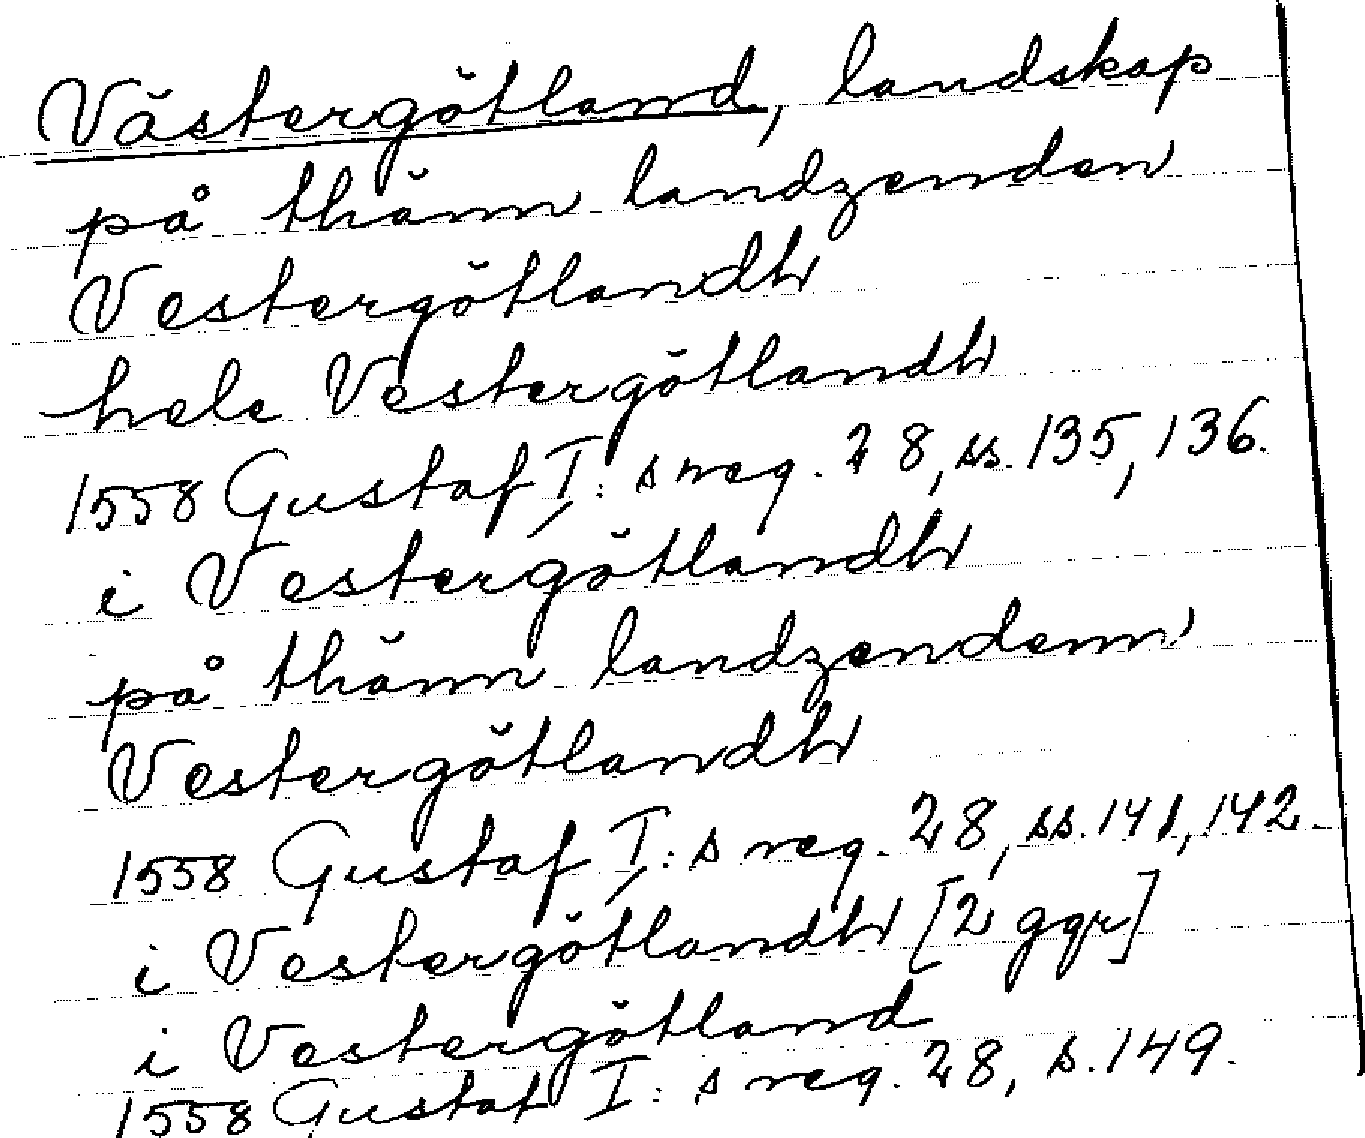 Västergötland, landskap
på thänn landzenden
Vestergötlandh
hele Vestergötlandh
1558 Gustaf I:s reg. 28, ss. 135, 136.
i Vestergötlandh
på thänn landzendenn
Vestergötlandh
1558 Gustaf I:s reg. 28, ss. 141, 142.
i Vestergötlandh [2 ggr]
i Vestergötland
1558 Gustaf I:s reg. 28, s. 149.